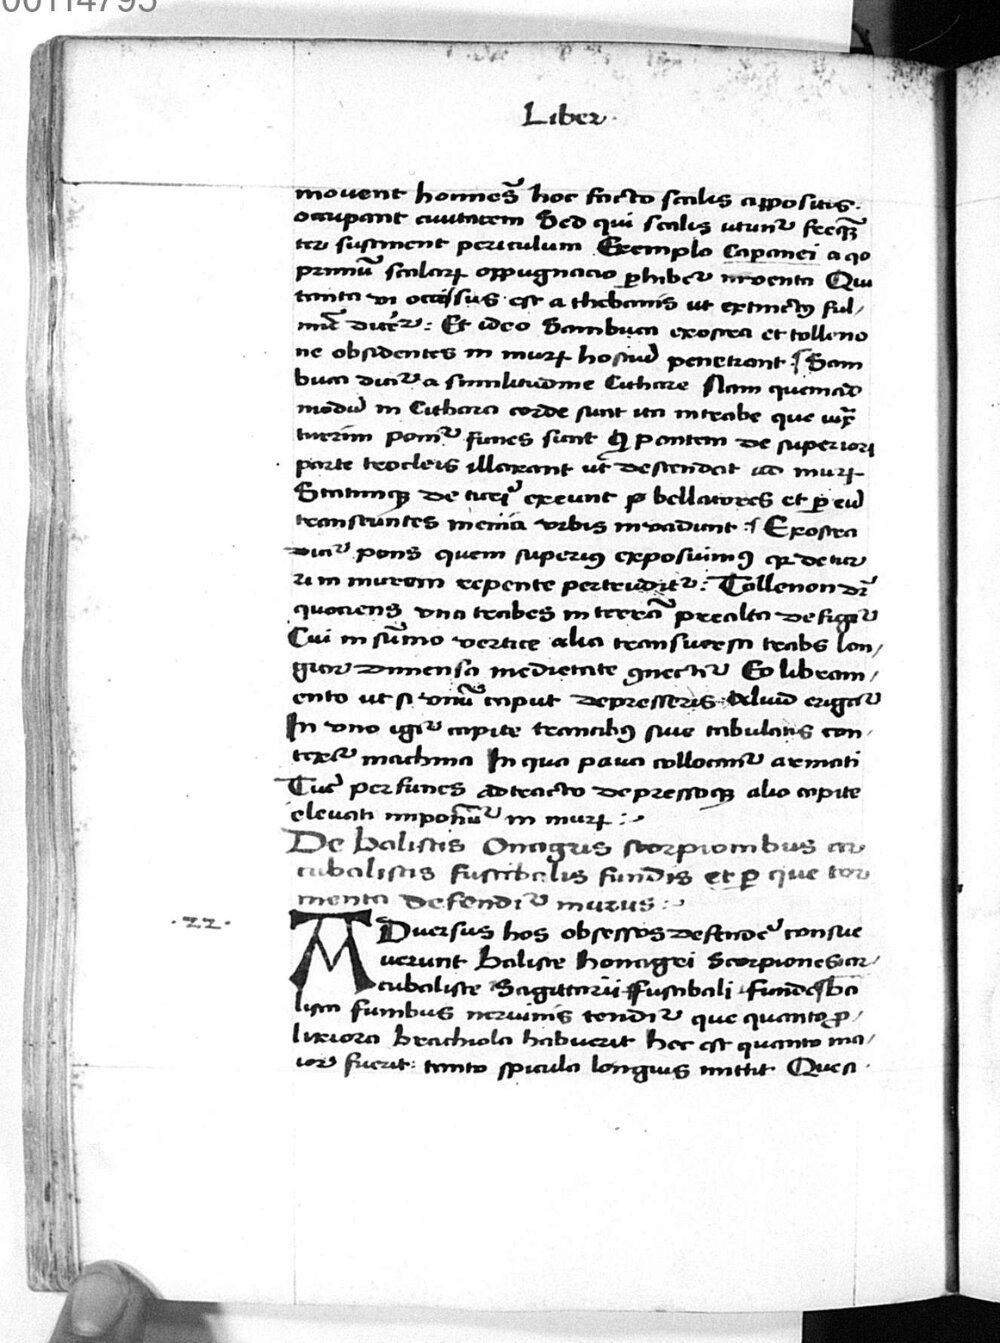 00114795
Liber
movent homines̄ hoc facto scalis appositis.
occupant ciuitatem Sed qui scalis utunt̉ freq̄
ter sustinent periculum Exemplo Capanei a qo
primū scalaꝝ oppugnacio ꝑhibet̉ inventa Qui
tanta vi occisus est a thebanis ut extinctꝰ ful/
mīe dicat̉: Et ideo Sambuca exostra et tolleno
ne obsidentes in muꝝ hostiū penetrant: Sam
buca dicit̉ a similitudine Cithare Nam quemad
modū in Cithara corde sunt ita in trabe que iux̄
turrim ponit̉ funes sunt q̄ pontem de superiori
parte trocleis illaxant ut descendat ad muꝝ
Statimqꝫ de turri exeunt bellatores et ꝑ eū
transeuntes menia urbis invadunt: Exostra
dicit̉ pons quem superiꝰ exposuimꝰ qꝛ de tur
ri in murum repente pertrudit̉: Tollenon dr̄
quociens una trabes in terrā prealta defigit̉
Cui in sūmo vertice alia transuersa trabs lon/
gior dimensa medietate ꝯnectit̉ Eo libram/
ento ut si unū caput depresseris aliud erigat̉
In uno igit̉ capite cratibꝰ sive tabulatis con
texit̉ machina In qua pauci collocant̉ armati
Tūc per funes adtracto depressoqꝫ alio capite
elevati imponūt̉ in muꝝ:
De balistis Onagris scorpionibus ar
cubalistis fustibalis fundis et ꝑ que tor
menta defendit̉ murus:
.22.
ADversus hos obsessos defendē consue
verunt baliste honagri Scorpiones ar/
cubaliste Sagittarii Fustibali funde ba
lista funibus nervinis tendit̉ que quanto ꝓ/
lixiora brachiola habuerit hec est quanto ma/
ior fuerit: tanto spicula longius mittit Que si